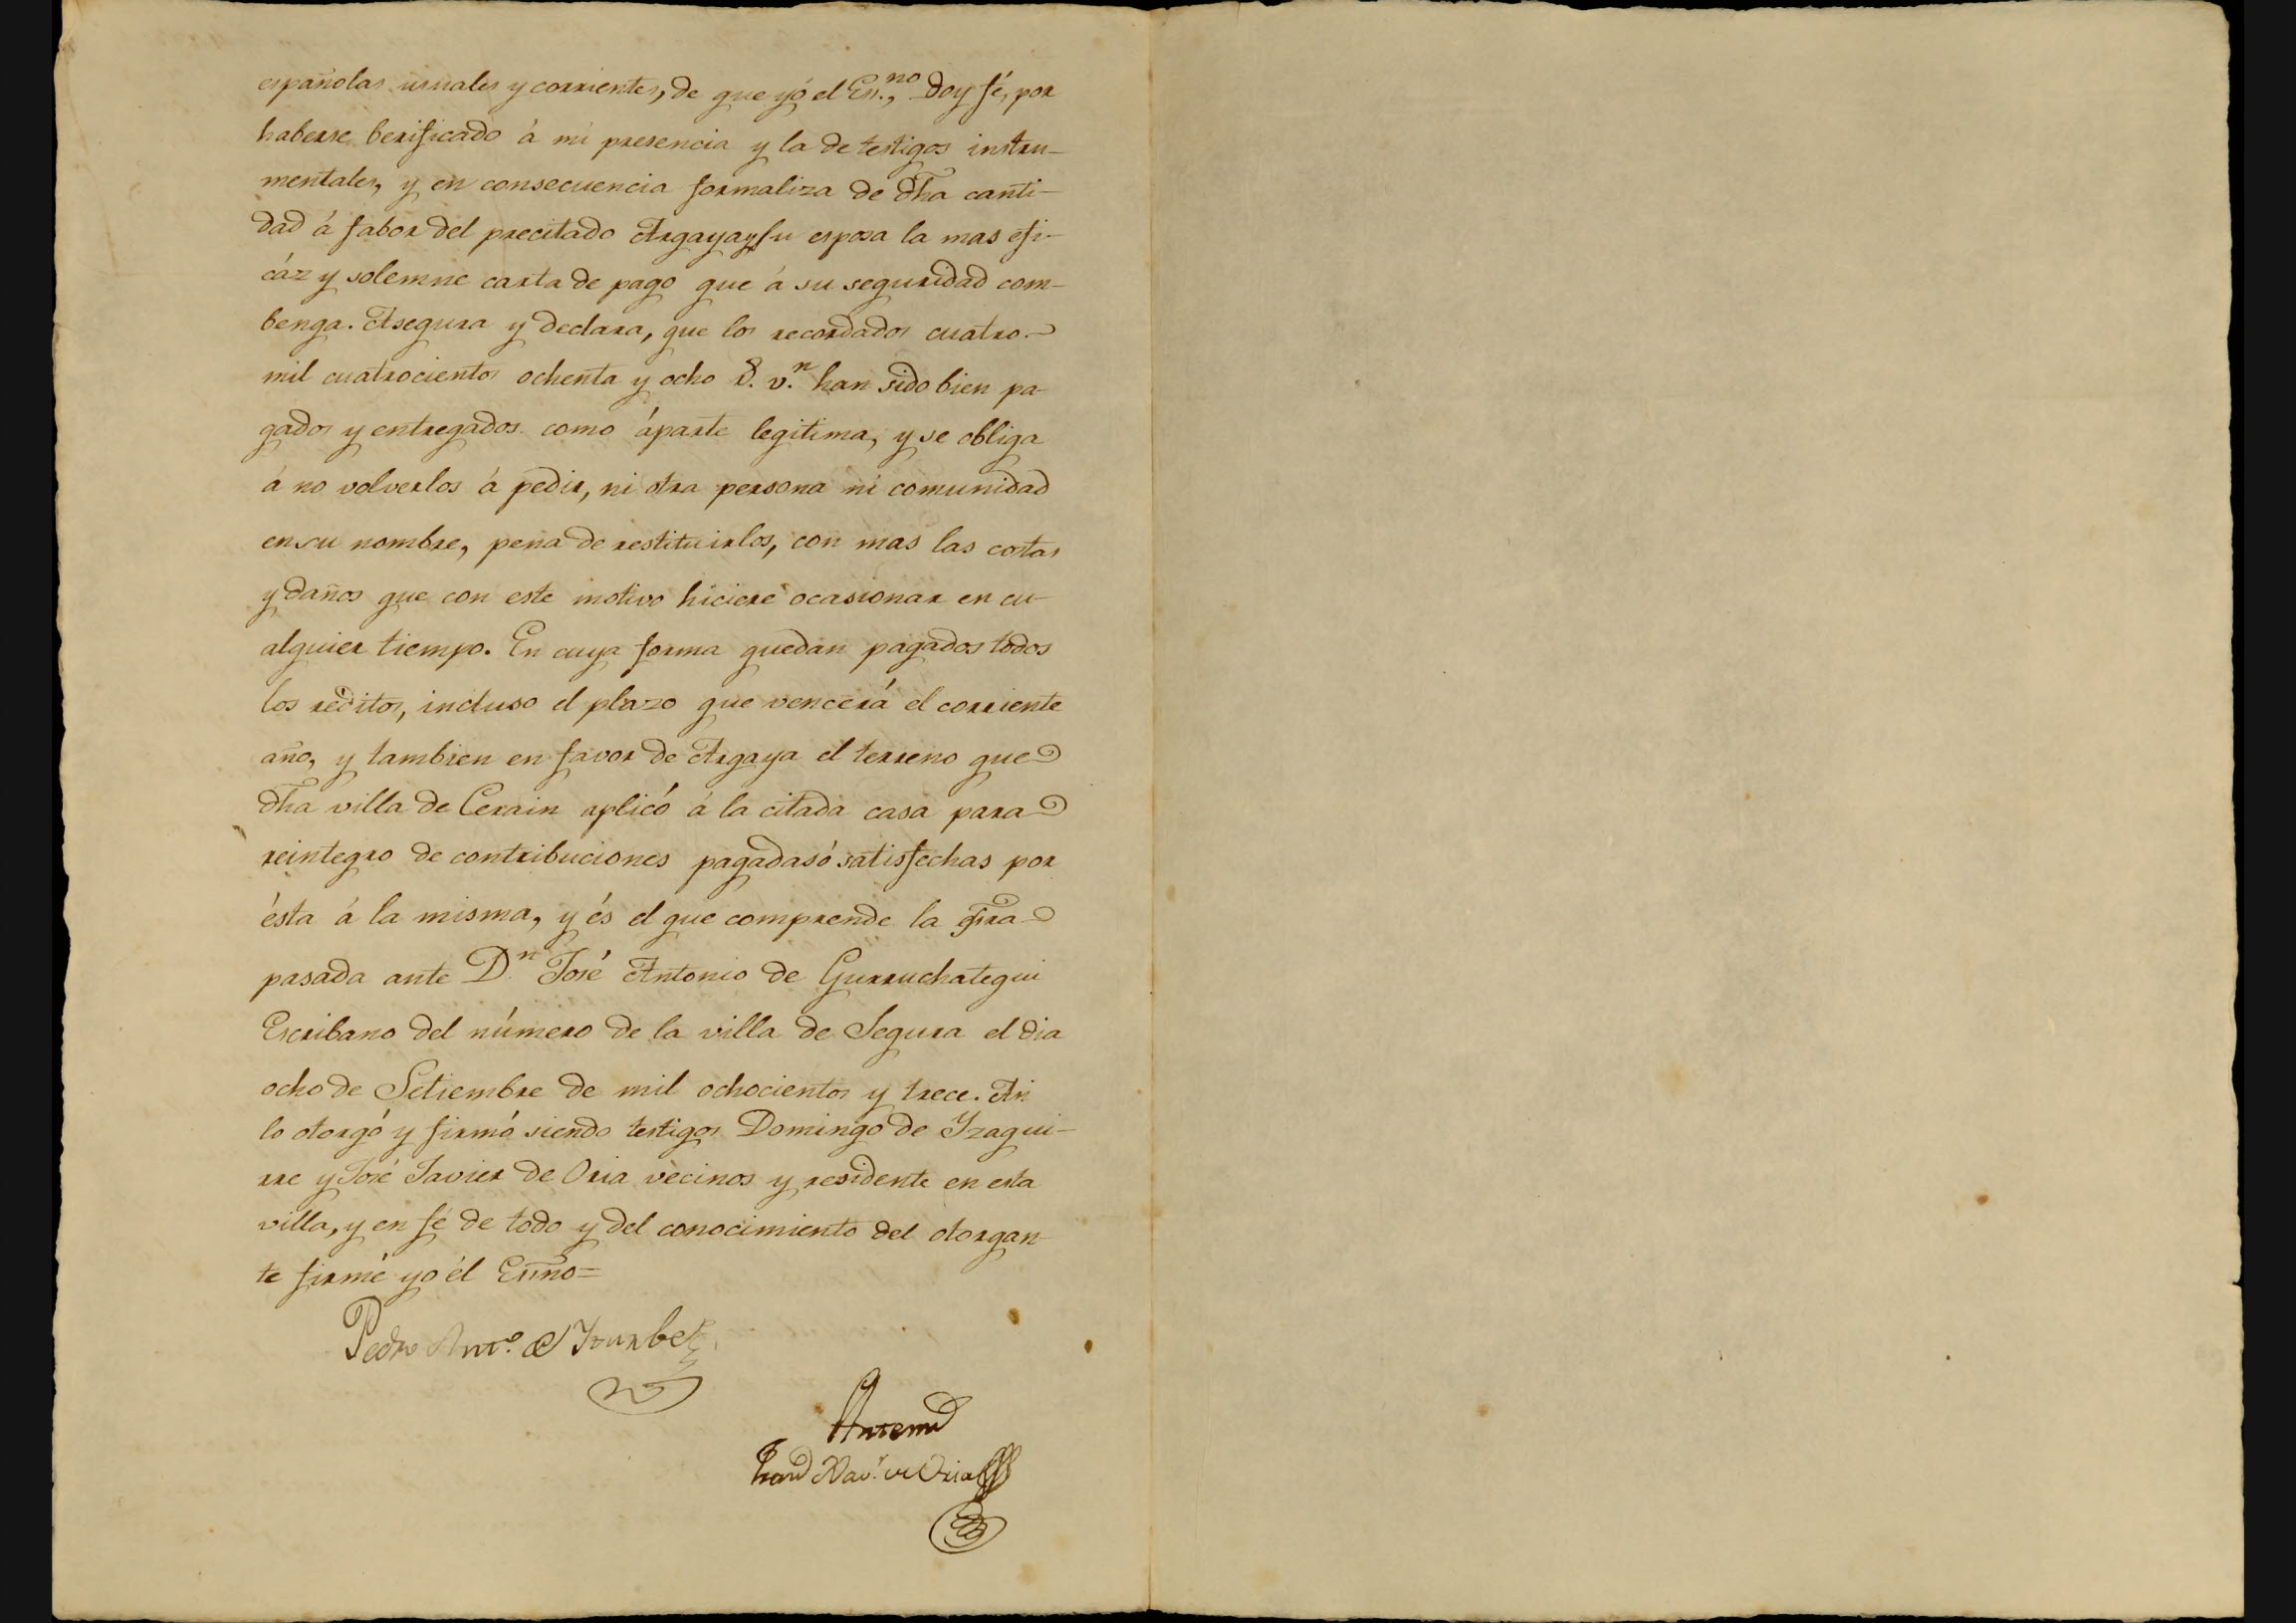 españolas usuales y corrientes, de que yó el Es.no, doy fé, por
haberse berificado á mi presencia y la de testigos instru-
mentales, y en consecuencia formaliza de dha canti-
dad á fabor del precitado Argaya y su esposa la mas efi-
cáz y solemne carta de pago que á su seguridad com-
benga. Asegura y declara, que los recordados cuatro
mil cuatrocientos ochenta y ocho r. v.n han sido bien pa-
gados y entregados como áparte legitima, y se obliga
á no volverlos á pedir, ni otra persona ni comunidad
en su nombre, pena de restituirlos, con mas las costas
y daños que con este motivo hiciere ocasionar en cu-
alquier tiempo. En cuya forma quedan pagados todos
los reditos, incluso el plazo que vencerá el corriente
año, y tambien en favor de Argaya el terreno que
dha villa de Cerain aplicó á la citada casa para
reintegro de contribuciones pagadas ó satisfechas por
ésta á la misma, y és el que comprende la
pasada ante D.n José Antonio de Gurruchategui
Escribano del número de la villa de Segura el dia
ocho de Setiembre de mil ochocientos y trece. Asi
lo otorgó y firmó siendo testigos Domingo de Yzagui-
rre y José Javier de Oria vecinos y residente en esta
villa, y en fé de todo y del conocimiento del otorgan
te firmé yo él Essno=
Pedro Ant.o de Yturbe
Antemi
Xav.r de Oria